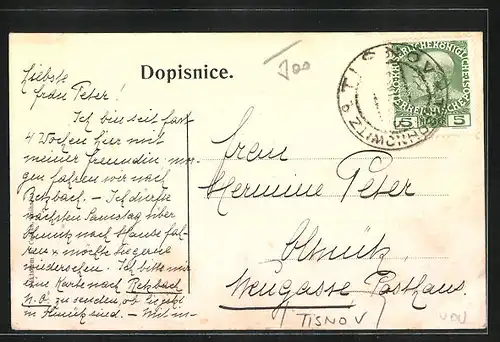 Dopisnice.
Liebste
Frau Peter!
Ich bin seit fast
4 Wochen hier mit
meiner Freundin mor-
gen fahren wir nach
Retzbach. – Ich dürfte
nächsten Samstag über
Olmütz nach Hause fah-
ren & möchte Sie gerne
wiedersehen. Ich bitte mir
eine Karte nach Retzbach
N.Ö. zu senden, ob Sie
in Olmütz sind. – Mit in-
Frau
Hermine Peter
Olmütz
Neugasse Posthaus.
TISNOV
TIŠNOV
5 5